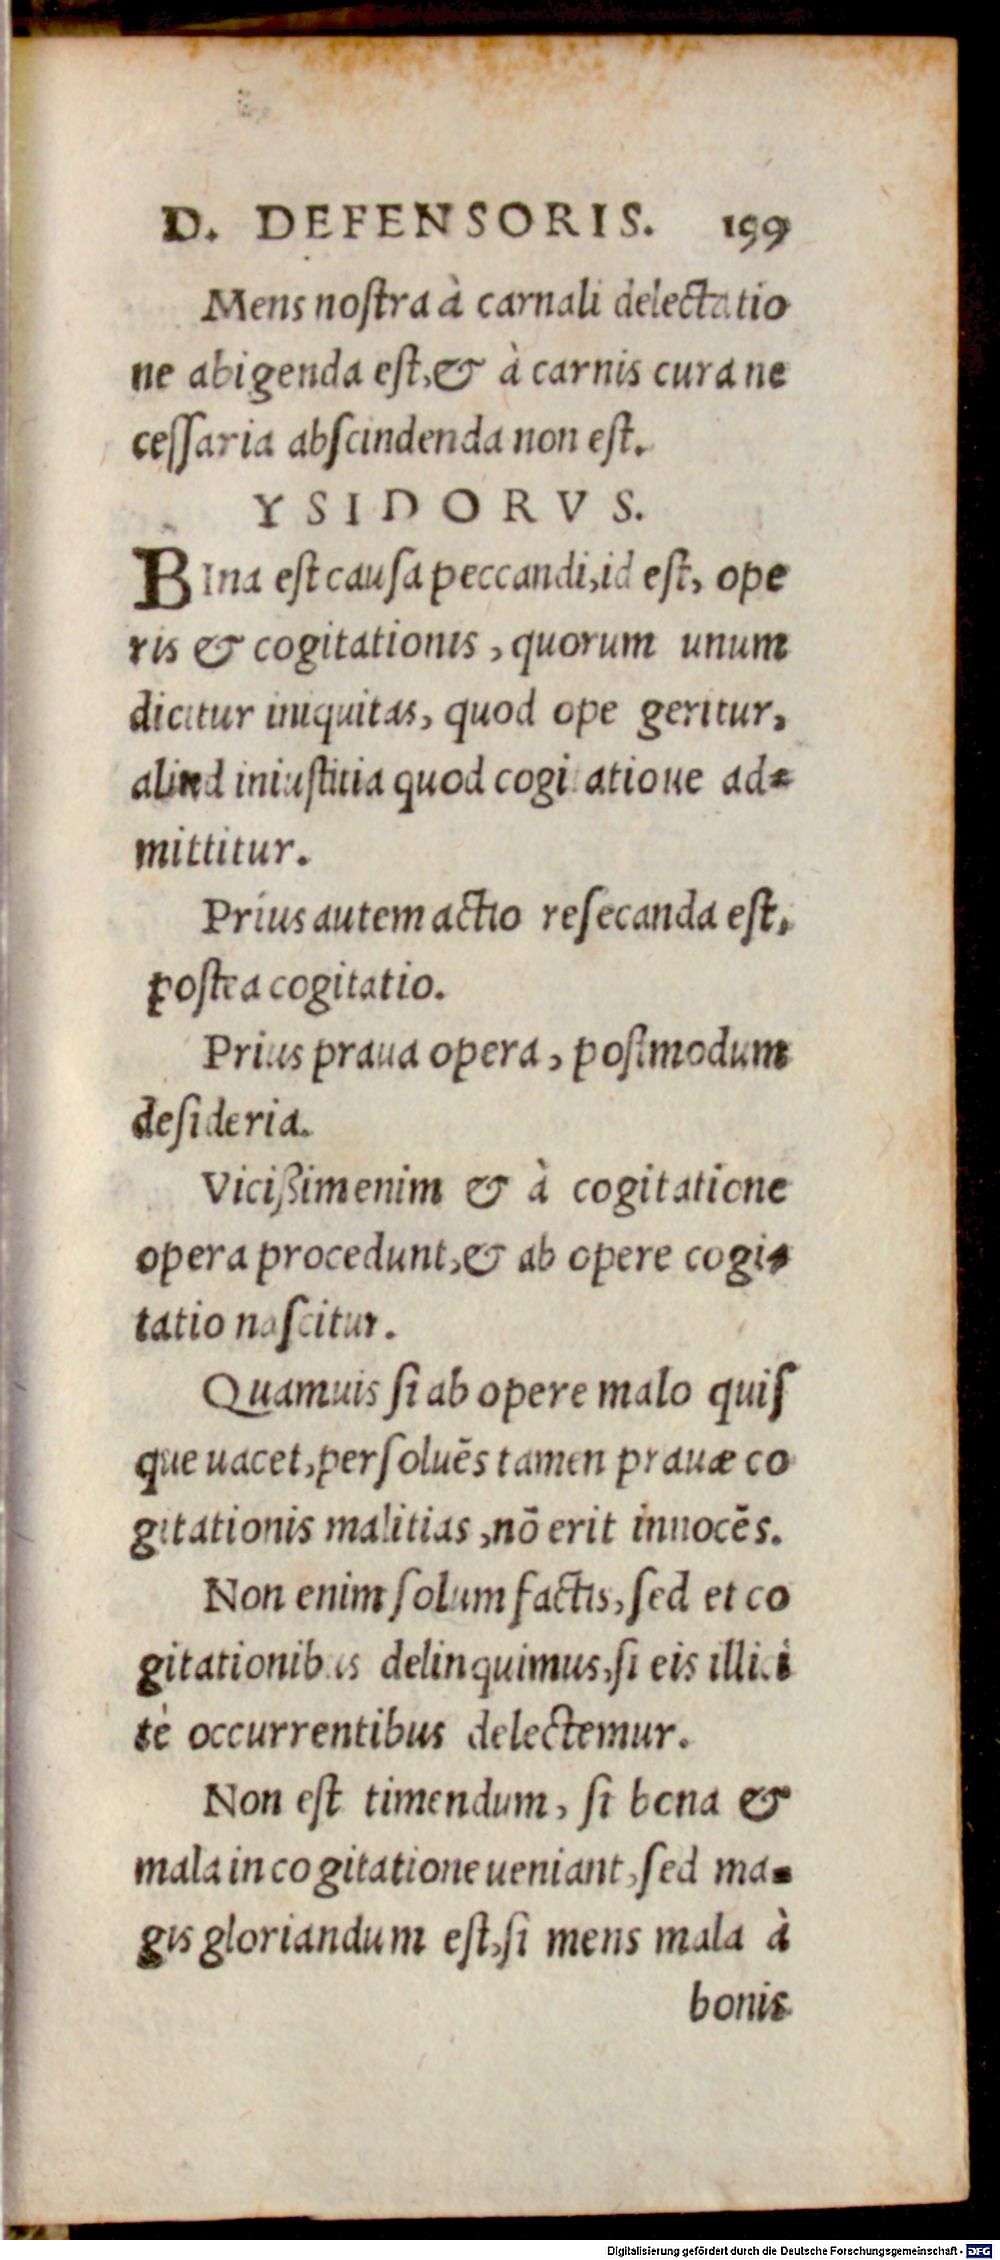 D. DEFENSORIS. 159
Mens noſtra à carnali delectatio
ne abigenda eſt, & à carnis cura ne
ceſſaria abſcindenda non eſt.
YSIDORVS.
BIna eſt cauſa peccandi, id eſt, ope
ris & cogitationis, quorum unum
dicitur iniquitas, quod ope geritur,
aliud iniuſtitia quod cogitatioue ad=
mittitur.
Prius autem actio reſecanda eſt,
poſtea cogitatio.
Prius praua opera, poſtmodum
deſideria.
Viciſsim enim & à cogitatione
opera procedunt, & ab opere cogi=
tatio naſcitur.
Quamuis ſi ab opere malo quiſ
que uacet, perſoluẽs tamen prauæ co
gitationis malitias, nõ erit innocẽs.
Non enim ſolum factis, ſed et co
gitationibus delinquimus, ſi eis illici
tè occurrentibus delectemur.
Non eſt timendum, ſi bona &
mala in cogitatione ueniant, ſed ma=
gis gloriandum eſt, ſi mens mala à
bonis
Digitalisierung gefördert durch die Deutsche Forschungsgemeinschaft - DFG